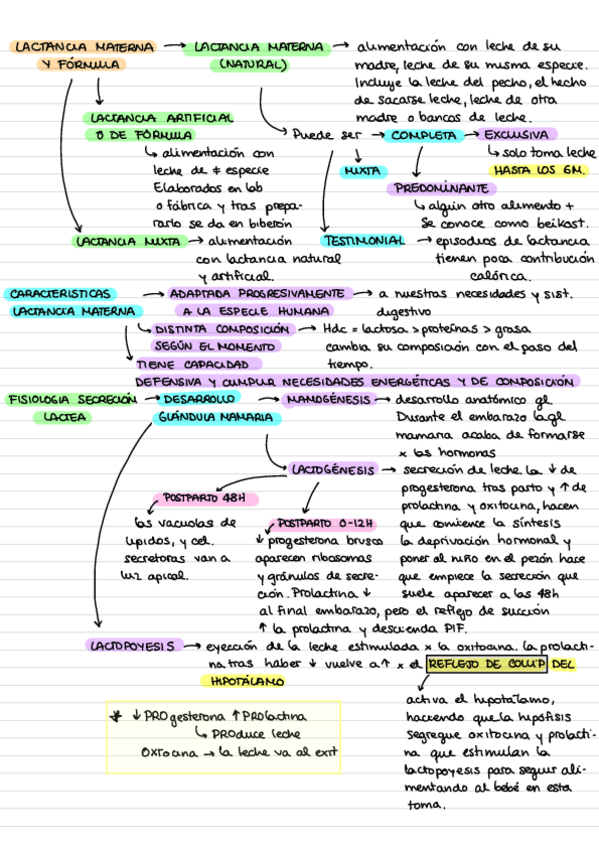 LACTANCIA MATERNA Y FÓRMULA → LACTANCIA MATERNA (NATURAL) → alimentación con leche de su
madre, leche de su misma especie.
Incluye la leche del pecho, el hecho
de sacarse leche, leche de otra
madre o bancos de leche.
LACTANCIA ARTIFICIAL
O DE FÓRMULA
↳ alimentación con
leche de ≠ especie
Elaborados en lab
o fábrica y tras prepa-
rarlo se da en biberón
Puede ser → COMPLETA → EXCLUSIVA
↳ solo toma leche
HASTA LOS 6M.
MIXTA
PREDOMINANTE
↳ algún otro alimento +
Se conoce como beikost.
LACTANCIA MIXTA → alimentación
con lactancia natural
y artificial.
TESTIMONIAL → episodios de lactancia
tienen poca contribución
calórica.
CARACTERISTICAS
LACTANCIA MATERNA
→ ADAPTADA PROGRESIVAMENTE
A LA ESPECIE HUMANA
→ a nuestras necesidades y sist.
digestivo
↳ DISTINTA COMPOSICIÓN
SEGÚN EL MOMENTO
→ Hdc = lactosa > proteínas > grasa
cambia su composición con el paso del
tiempo.
TIENE CAPACIDAD
DEFENSIVA Y CUMPLIR NECESIDADES ENERGÉTICAS Y DE COMPOSICIÓN
FISIOLOGIA SECRECIÓN
LACTEA
→ DESARROLLO
GLÁNDULA MAMARIA
→ MAMOGÉNESIS → desarrollo anatómico gl.
Durante el embarazo la gl
mamaria acaba de formarse
x las hormonas
LACTOGÉNESIS → secreción de leche. La ↓ de
progesterona tras parto y ↑ de
prolactina y oxitocina, hacen
que comience la síntesis
la deprivación hormonal y
poner al niño en el pezón hace
que empiece la secreción que
suele aparecer a las 48h
POSTPARTO 48H
las vacuolas de
lípidos, y cel.
secretoras van a
luz apical.
POSTPARTO 0-12H
↓ progesterona brusco
aparecen ribosomas
y gránulos de secre-
ción. Prolactina ↓
al final embarazo, pero el reflejo de succión
↑ la prolactina y descienda PIF.
LACTOPOYESIS → eyección de la leche estimulada x la oxitocina. La prolacti-
na tras haber ↓ vuelve a ↑ x el REFLEJO DE COLLIP DEL
HIPOTÁLAMO
activa el hipotálamo,
haciendo que la hipófisis
segregue oxitocina y prolacti-
na que estimulan la
lactopoyesis para seguir ali-
mentando al bebé en esta
toma.
* ↓ PROgesterona ↑ PROlactina
↳ PROduce leche
OXITocina → la leche va al exit